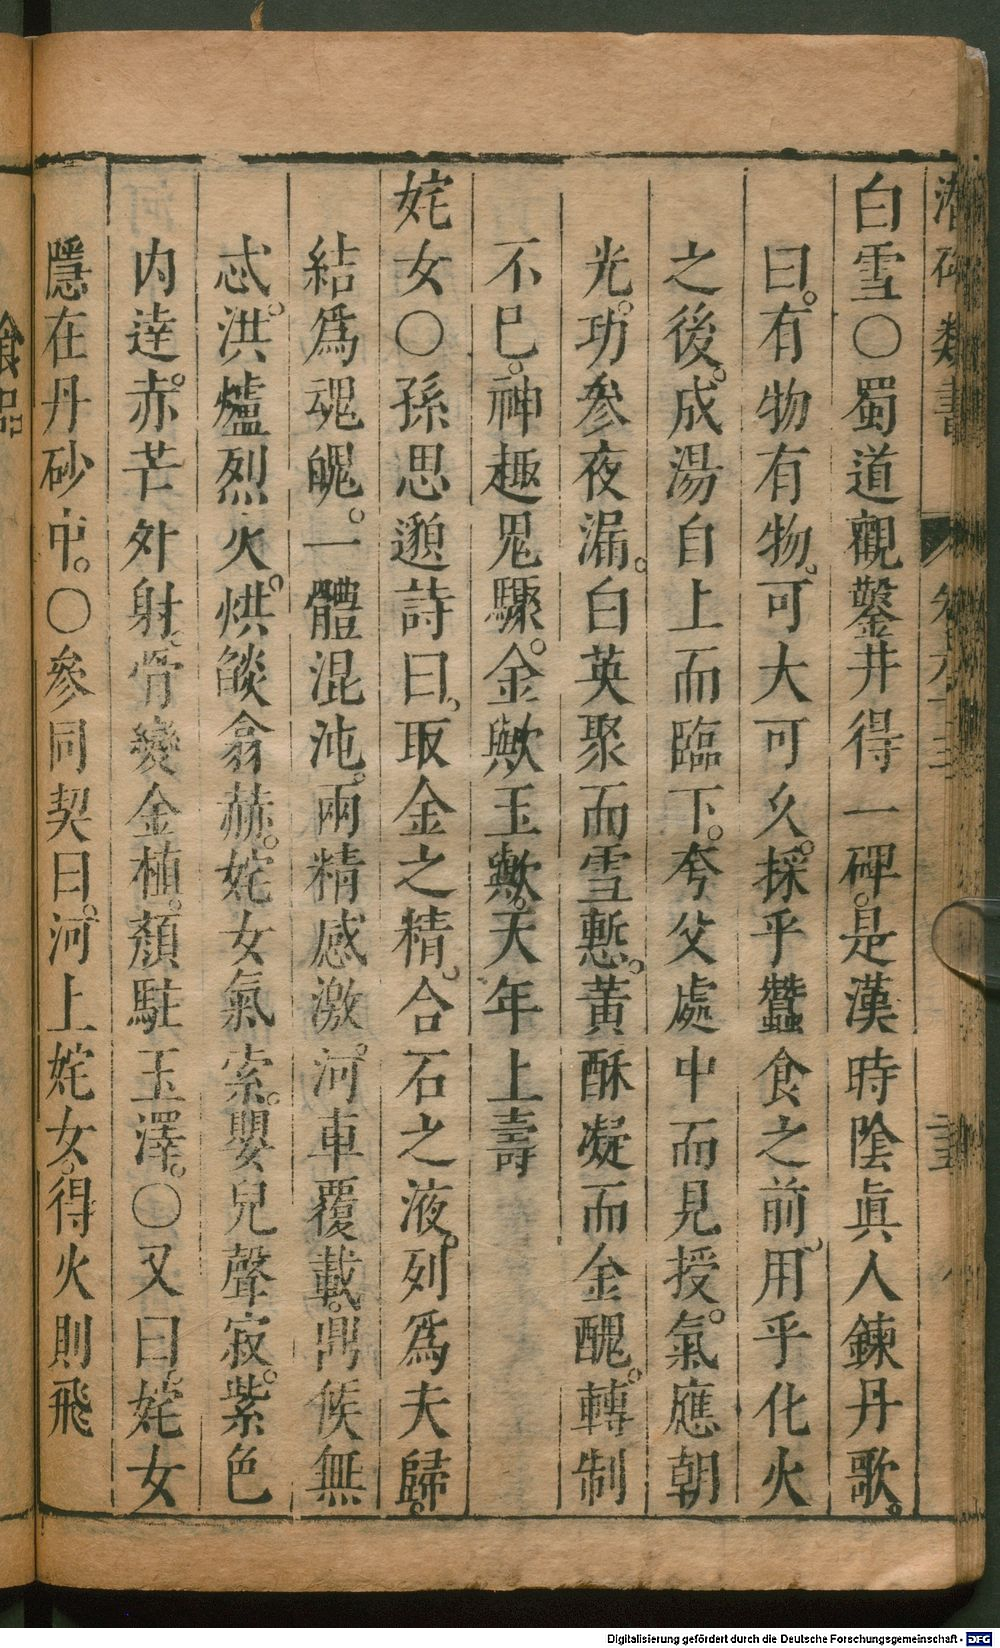 潛確類書
卷九十三
白雪〇蜀道觀鑿井得一碑。是漢時陰眞人鍊丹歌。
曰。有物有物。可大可久。採乎蠶食之前。用乎化火
之後。成湯自上而臨下。夸父處中而見授。氣應朝
光。功參夜漏。白英聚而雪慙。黃酥凝而金醜。轉制
不已。神趣鬼驟。金歟玉歟。天年上壽
姹女〇孫思邈詩曰。取金之精。合石之液。列爲夫歸。
結爲魂魄。一體混沌。兩精感激。河車覆載。鼎候無
忒。洪爐烈火。烘燄翕赫。姹女氣索。嬰兒聲寂。紫色
內達。赤芒外射。骨變金植。顏駐玉澤。〇又曰。姹女
隱在丹砂中。〇參同契曰。河上姹女。得火則飛
Digitalisierung gefördert durch die Deutsche Forschungsgemeinschaft - DFG